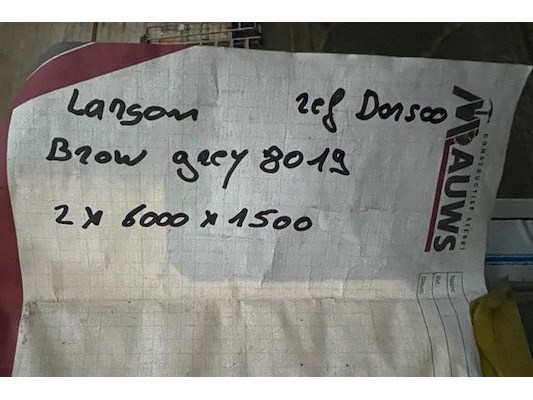 Larson ref Dorsoo
Brow grey 8019
2 x 6000 x 1500
MAUWS
CONSTRUCTIEF STERK!